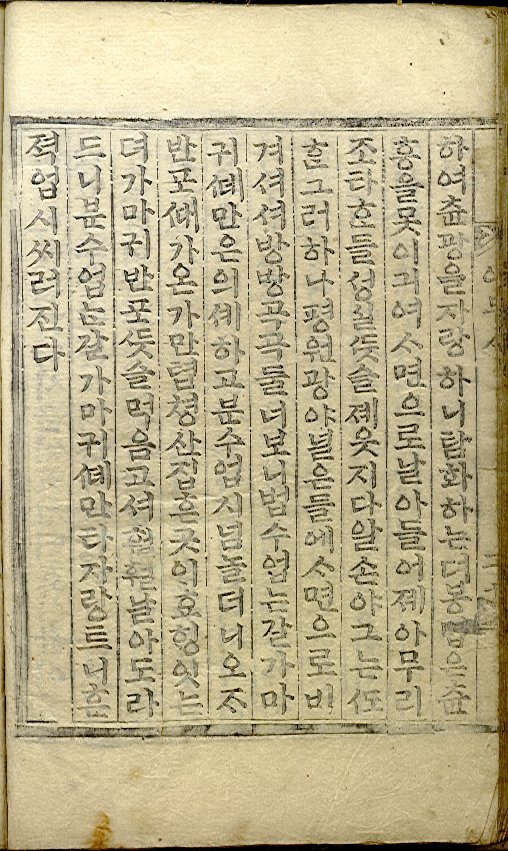 하여츈광을자랑하니탐화하는더봉은츈
흥을못이긔여ᄉᆞ면으로날아들어졔아무리
조타흔들성실ᄯᅳᆺ슬졔웃지다알손야그는ᄯᅩ
흔그러하나평원광야널은들에ᄉᆞ면으로비
겨셔셔방방곡곡둘너보니범수업는갈가마
귀ᄯᅦ만은의ᄯᅦ하고분수업시넘놀더니오ᄌᆞ
반포ᄯᅢ가온가만쳡쳥산집흔곳의효힝잇는
뎌가마귀반포ᄯᅳᆺ슬먹음고셔훨훨날아도라
드니분수업는갈가마귀ᄯᅦ만타자랑트니흔
젹업시씨러진다